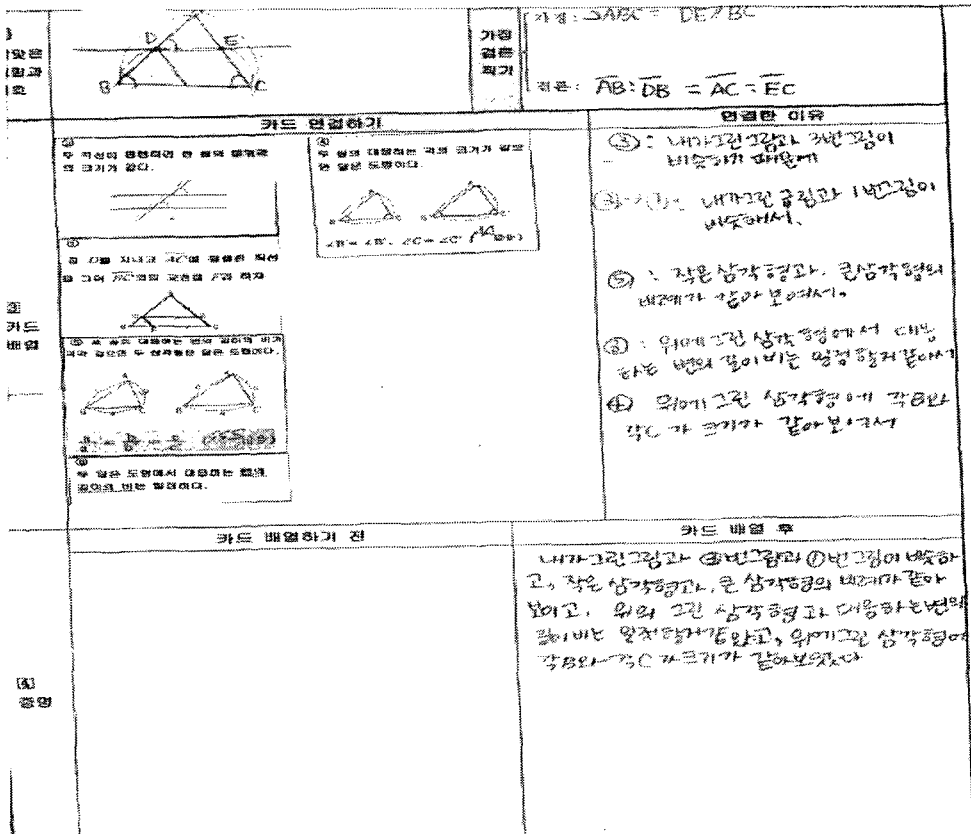 맞은
가정
결론
찍기
가정: △ABC = DE//BC
결론: AB:DB = AC:EC
D
E
B
C
카드 연결하기
연결한 이유
두 직선이 평행하면 한 쌍의
의 크기가 같다.
④
두 쌍의 대응하는 각의 크기가 같으
면 닮은 도형이다.
∠B = ∠B', ∠C = ∠C' (AA닮음)
점 D를 지나고 AC에 평행한 직선
을 그어 BC와의 교점을 F라 하자
세 쌍의 대응하는 변의 길이의 비가
각각 같으면 두 삼각형은 닮은 도형이다.
두 닮은 도형에서 대응하는 변의
길이의 비는 일정하다.
③ : 내가그린그림과 3번그림이
비슷하기 때문에
내가그린 그림과 1번그림이
비슷해서.
⑤ : 작은삼각형과. 큰삼각형의
비례가 같아 보여서.
: 위에그린 삼각형에서 대응
하는 변의 길이비는 일정할거같아서
④ 위에 그린 삼각형에 각B와
각C 가 크기가 같아보여서
③
카드
배열
카드 배열하기 전
카드 배열 후
내가그린그림과 ③번그림과 ①번그림이 비슷하
고, 작은 삼각형과, 큰 삼각형의 비례가 같아
보이고. 위의 그린 삼각형과 대응하는변의
길이비는 일정할거같았고, 위에그린 삼각형에
각B와 각C 가크기가 같아보였다
④
증명